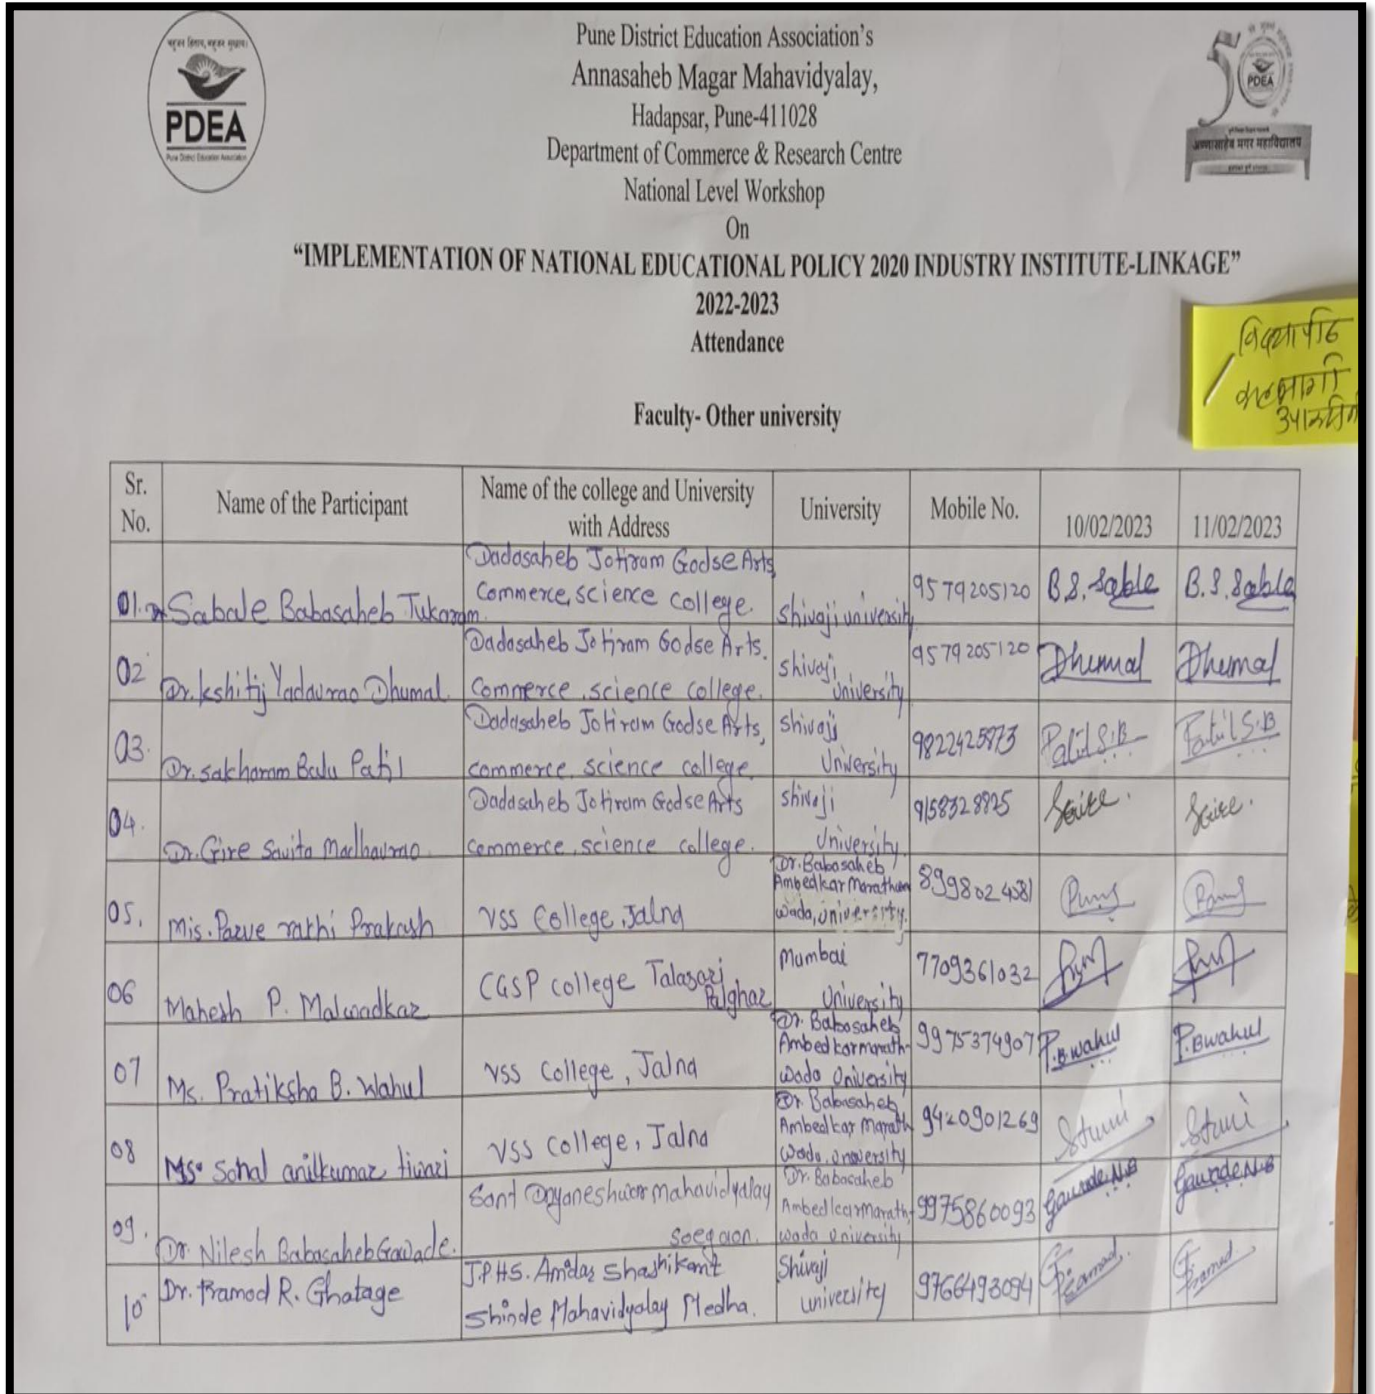 बहुजन हिताय, बहुजन सुखाय
PDEA
Pune District Education Association
Pune District Education Association's
Annasaheb Magar Mahavidyalay,
Hadapsar, Pune-411028
Department of Commerce & Research Centre
National Level Workshop
On
"IMPLEMENTATION OF NATIONAL EDUCATIONAL POLICY 2020 INDUSTRY INSTITUTE-LINKAGE"
2022-2023
Attendance
Faculty- Other university
50
PDEA
अण्णासाहेब मगर महाविद्यालय
विद्यापीठ
Sr. No. Name of the Participant Name of the college and University with Address University Mobile No. 10/02/2023 11/02/2023
01. Sabale Babasaheb Tukaram Dadasaheb Jotiram Godse Arts, Commerce, science college. Shivaji university 9579205120 B.S. Sable B.S. Sable
02 Dr. Kshitij Yadavrao Dhumal. Dadasaheb Jotiram Godse Arts, Commerce, science college. Shivaji University 9579205120 Dhumal Dhumal
03. Dr. Sakharam Balu Patil Dadasaheb Jotiram Godse Arts, commerce, science college. Shivaji University 9822425873 Patil S.B Patil S.B
04. Dr. Gire Savita Madhavrao Dadasaheb Jotiram Godse Arts commerce, science college. Shivaji University. 9158328825
05. Mis. Parve Prakash VSS College, Jalna Dr. Babasaheb Ambedkar Marathwada, University.
06 Mahesh P. Malwadkar CGSP college Talasari Palghar Mumbai University 7709361032
07 Ms. Pratiksha B. Wahul VSS College, Jalna Dr. Babasaheb Ambedkar Marath-wada University 9975374907 P.B wahul P.B wahul
08 Ms. Sonal anilkumar tiwari VSS College, Jalna Dr. Babasaheb Ambedkar Marathwada, University 9420901269
09. Dr. Nilesh Babasaheb Gawade. Sant Dnyaneshwar Mahavidyalay Soegaon. Dr. Babasaheb Ambedkar Marath-wada University 9975860093 Gawade N.B Gawade N.B
10 Dr. Pramod R. Ghatage J.P.H.S. Amdar Shashikant Shinde Mahavidyalay Medha. Shivaji university 9766493094 Pramod Pramod